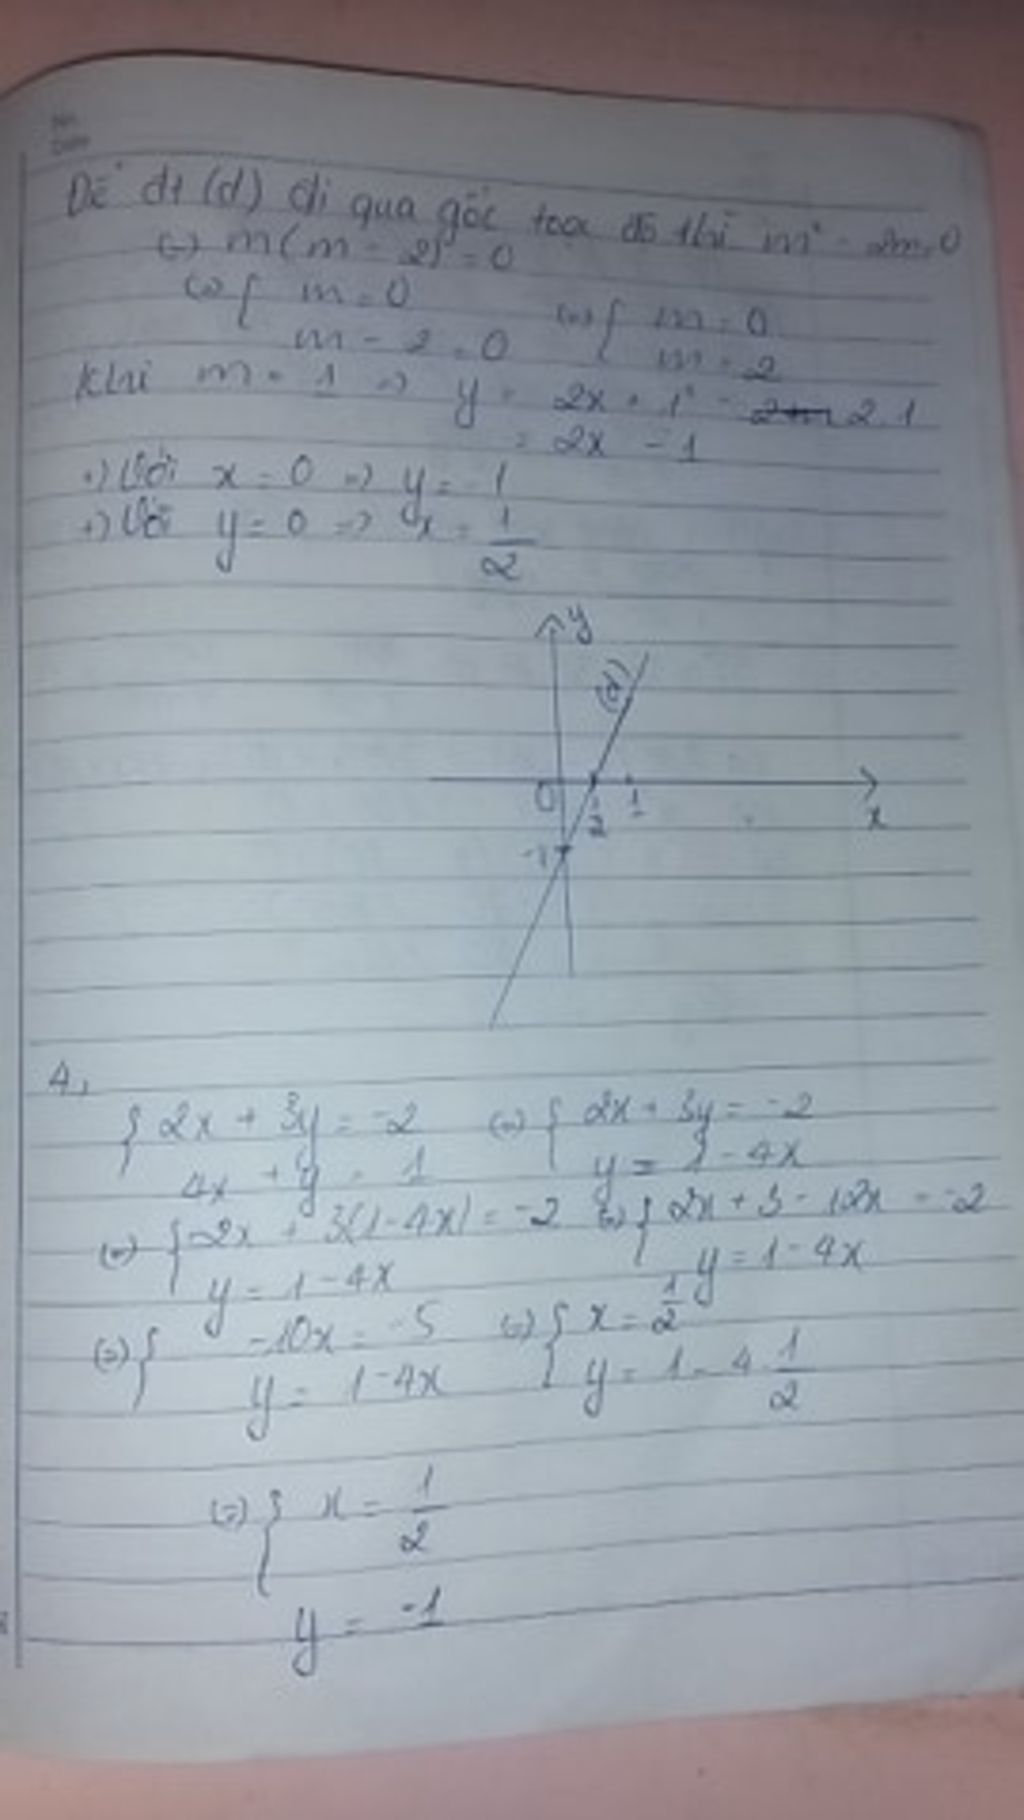 No.
Date
Để đt (d) đi qua gốc toạ độ thì m² - 2m = 0
(=) m(m - 2) = 0
(=) { m = 0 (=) { m = 0
m - 2 = 0 m = 2
Khi m = 1 => y = 2x + 1² - 2.1
= 2x - 1
+) Với x = 0 => y = -1
+) Với y = 0 => x = 1/2
y
(d)
0 1/2 1 x
-1
4,
{ 2x + 3y = -2 (=) { 2x + 3y = -2
4x + y = 1 y = 1 - 4x
(=) { 2x + 3(1-4x) = -2 (=) { 2x + 3 - 12x = -2
y = 1 - 4x y = 1 - 4x
(=) { -10x = -5 (=) { x = 1/2
y = 1 - 4x y = 1 - 4 . 1/2
(=) { x = 1/2
y = -1